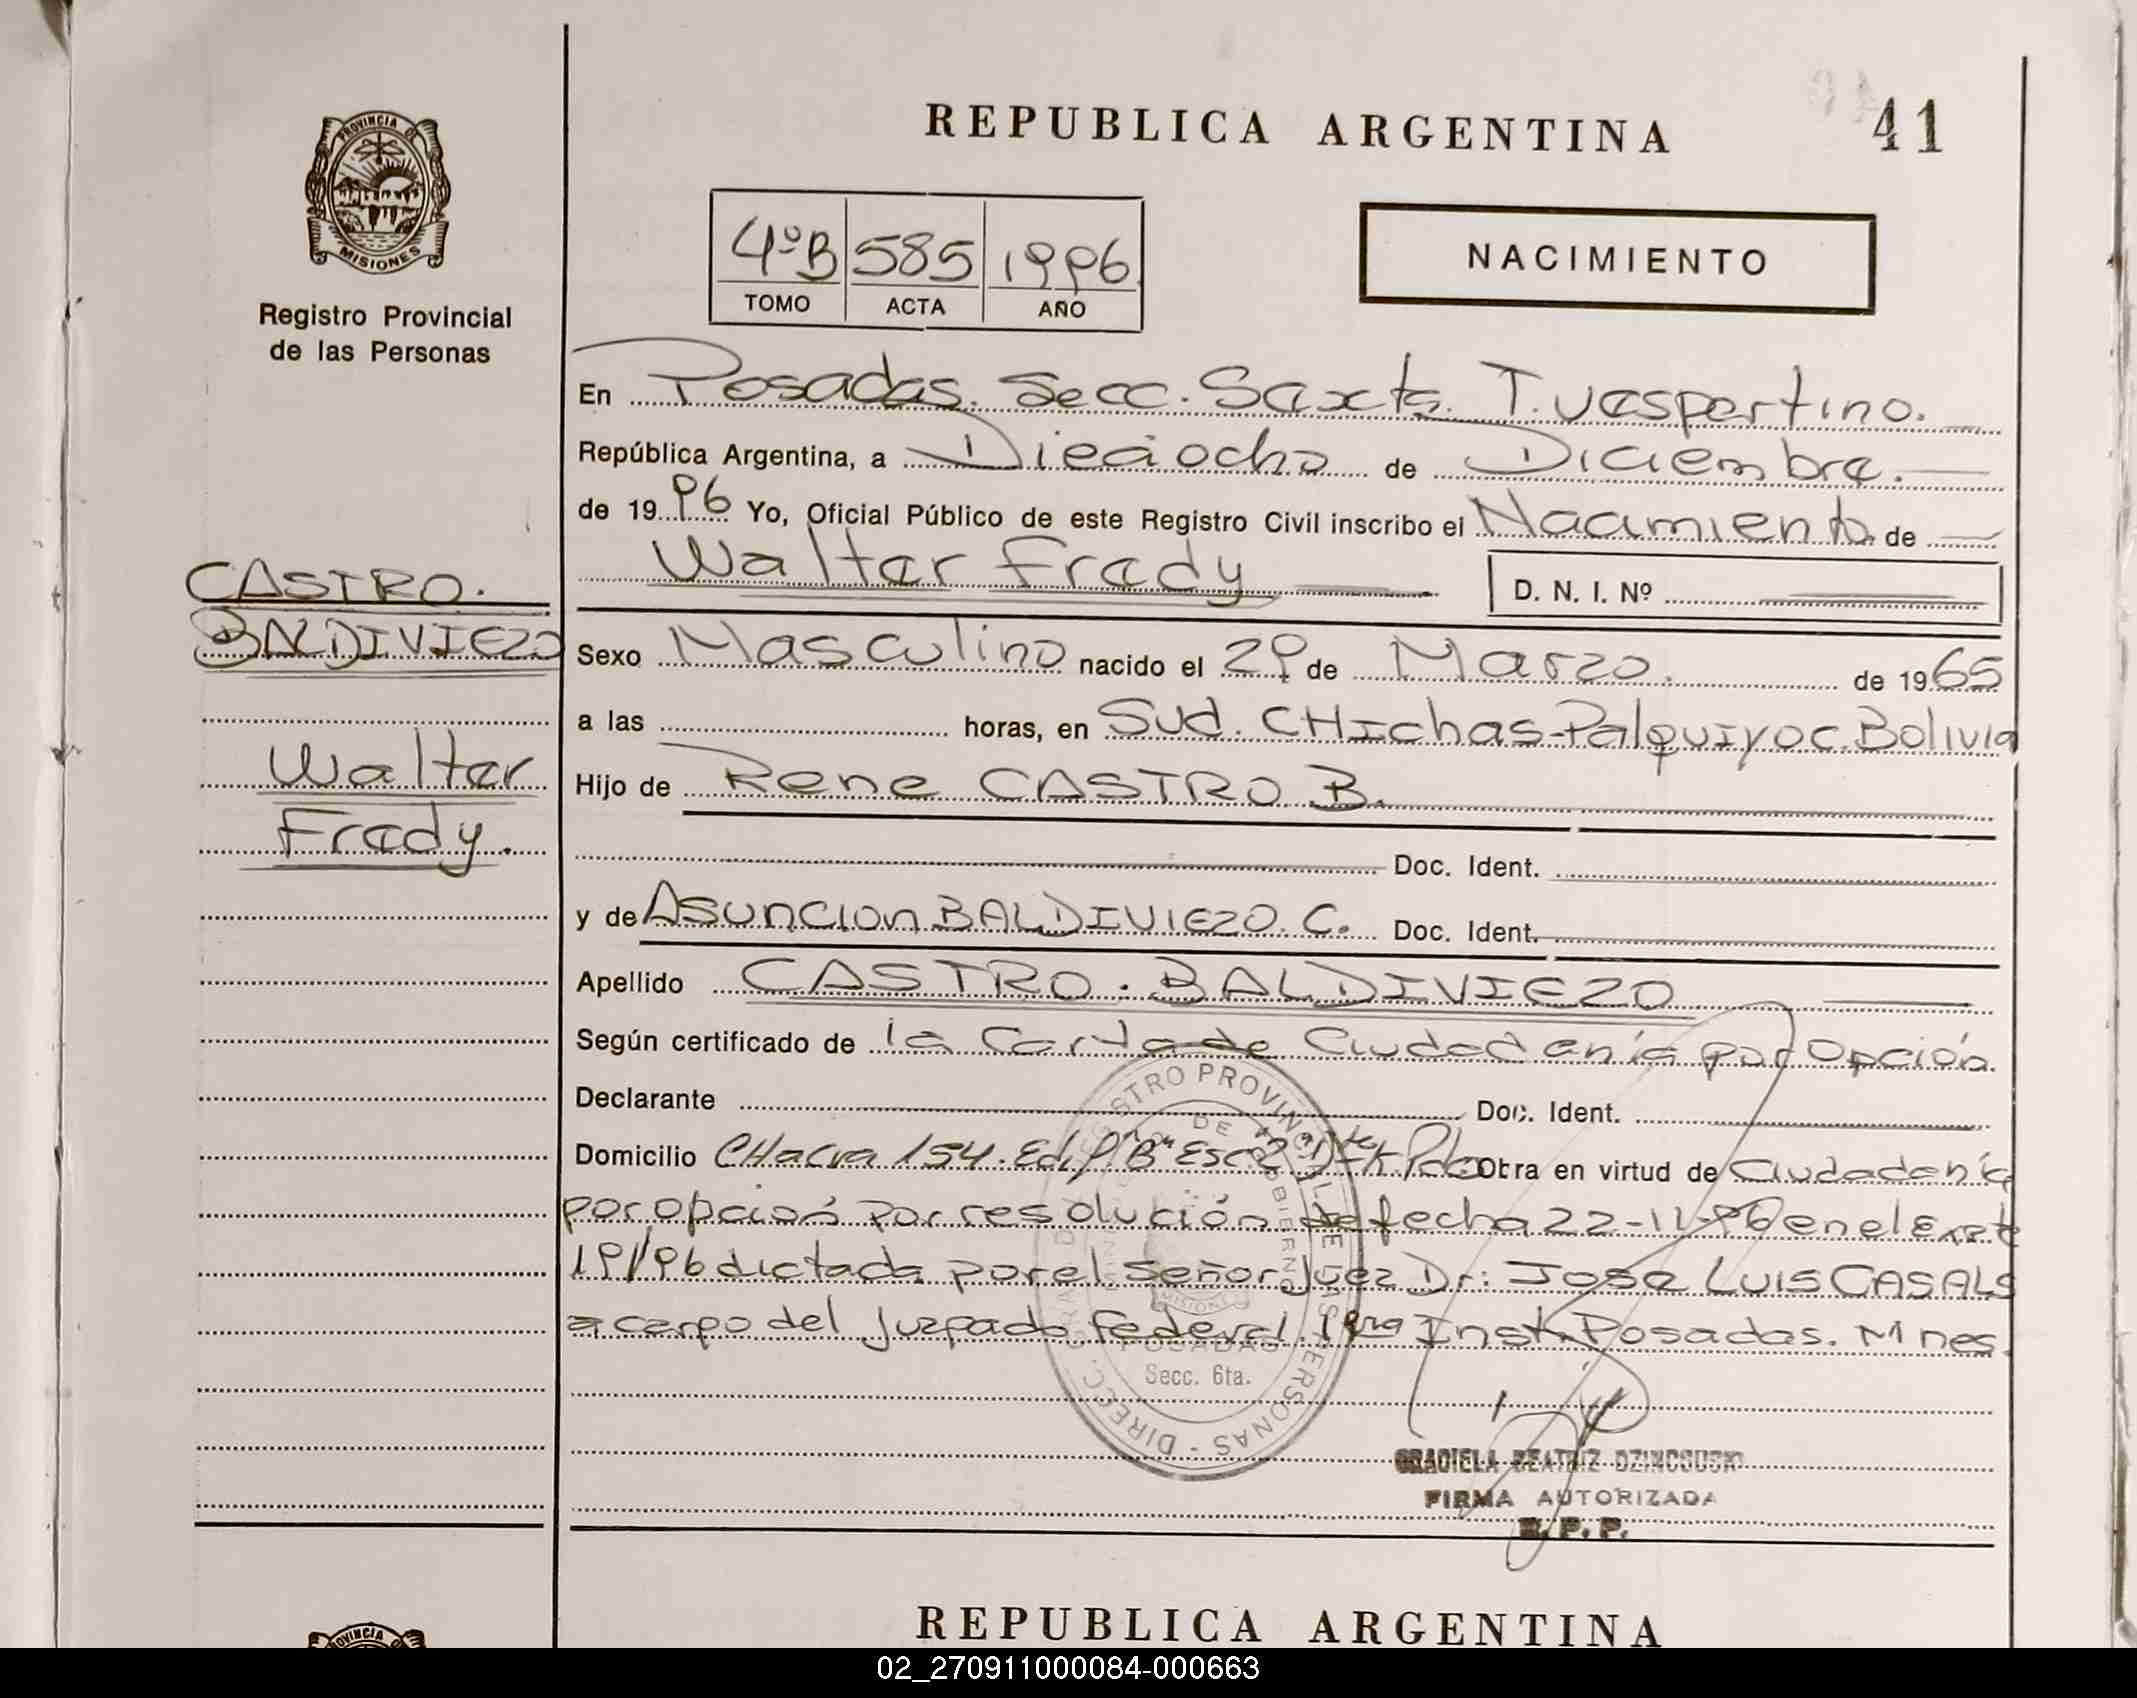 REPUBLICA ARGENTINA
41
PROVINCIA DE
MISIONES
Registro Provincial
de las Personas
4ºB 585 1996
TOMO ACTA AÑO
NACIMIENTO
En Posadas. Secc. Sexta. T. vespertino.
República Argentina, a Dieciocho de Diciembre.
de 1996 Yo, Oficial Público de este Registro Civil inscribo el Nacimiento de
Walter Fredy
D. N. I. Nº
CASTRO.
BALDIVIEZO
Walter
Fredy.
Sexo Masculino nacido el 29 de Marzo. de 1965
a las horas, en Sud. CHIchas-Palquiyoc. Bolivia
Hijo de Rene CASTRO B.
Doc. Ident.
y de Asuncion BALDIVIEZO. C. Doc. Ident.
Apellido CASTRO. BALDIVIEZO
Según certificado de la Carta de Ciudadanía por Opción.
Declarante Doc. Ident.
Domicilio CHacra 154. Ed. P. "B" Esc. 2 Obra en virtud de Ciudadanía
por opción por resolución de fecha 22-11-96 en el Expte
19/96 dictada por el Señor Juez Dr: Jose LUIS CASALS
a cargo del Juzgado Federal. 1era Inst. Posadas. Mnes.
REGISTRO PROVINCIAL DE LAS PERSONAS - DIRECC.
MISIONES
POSADAS
Secc. 6ta.
GRACIELA BEATRIZ
FIRMA AUTORIZADA
R. P. P.
REPUBLICA ARGENTINA
PROVINCIA
02_270911000084-000663